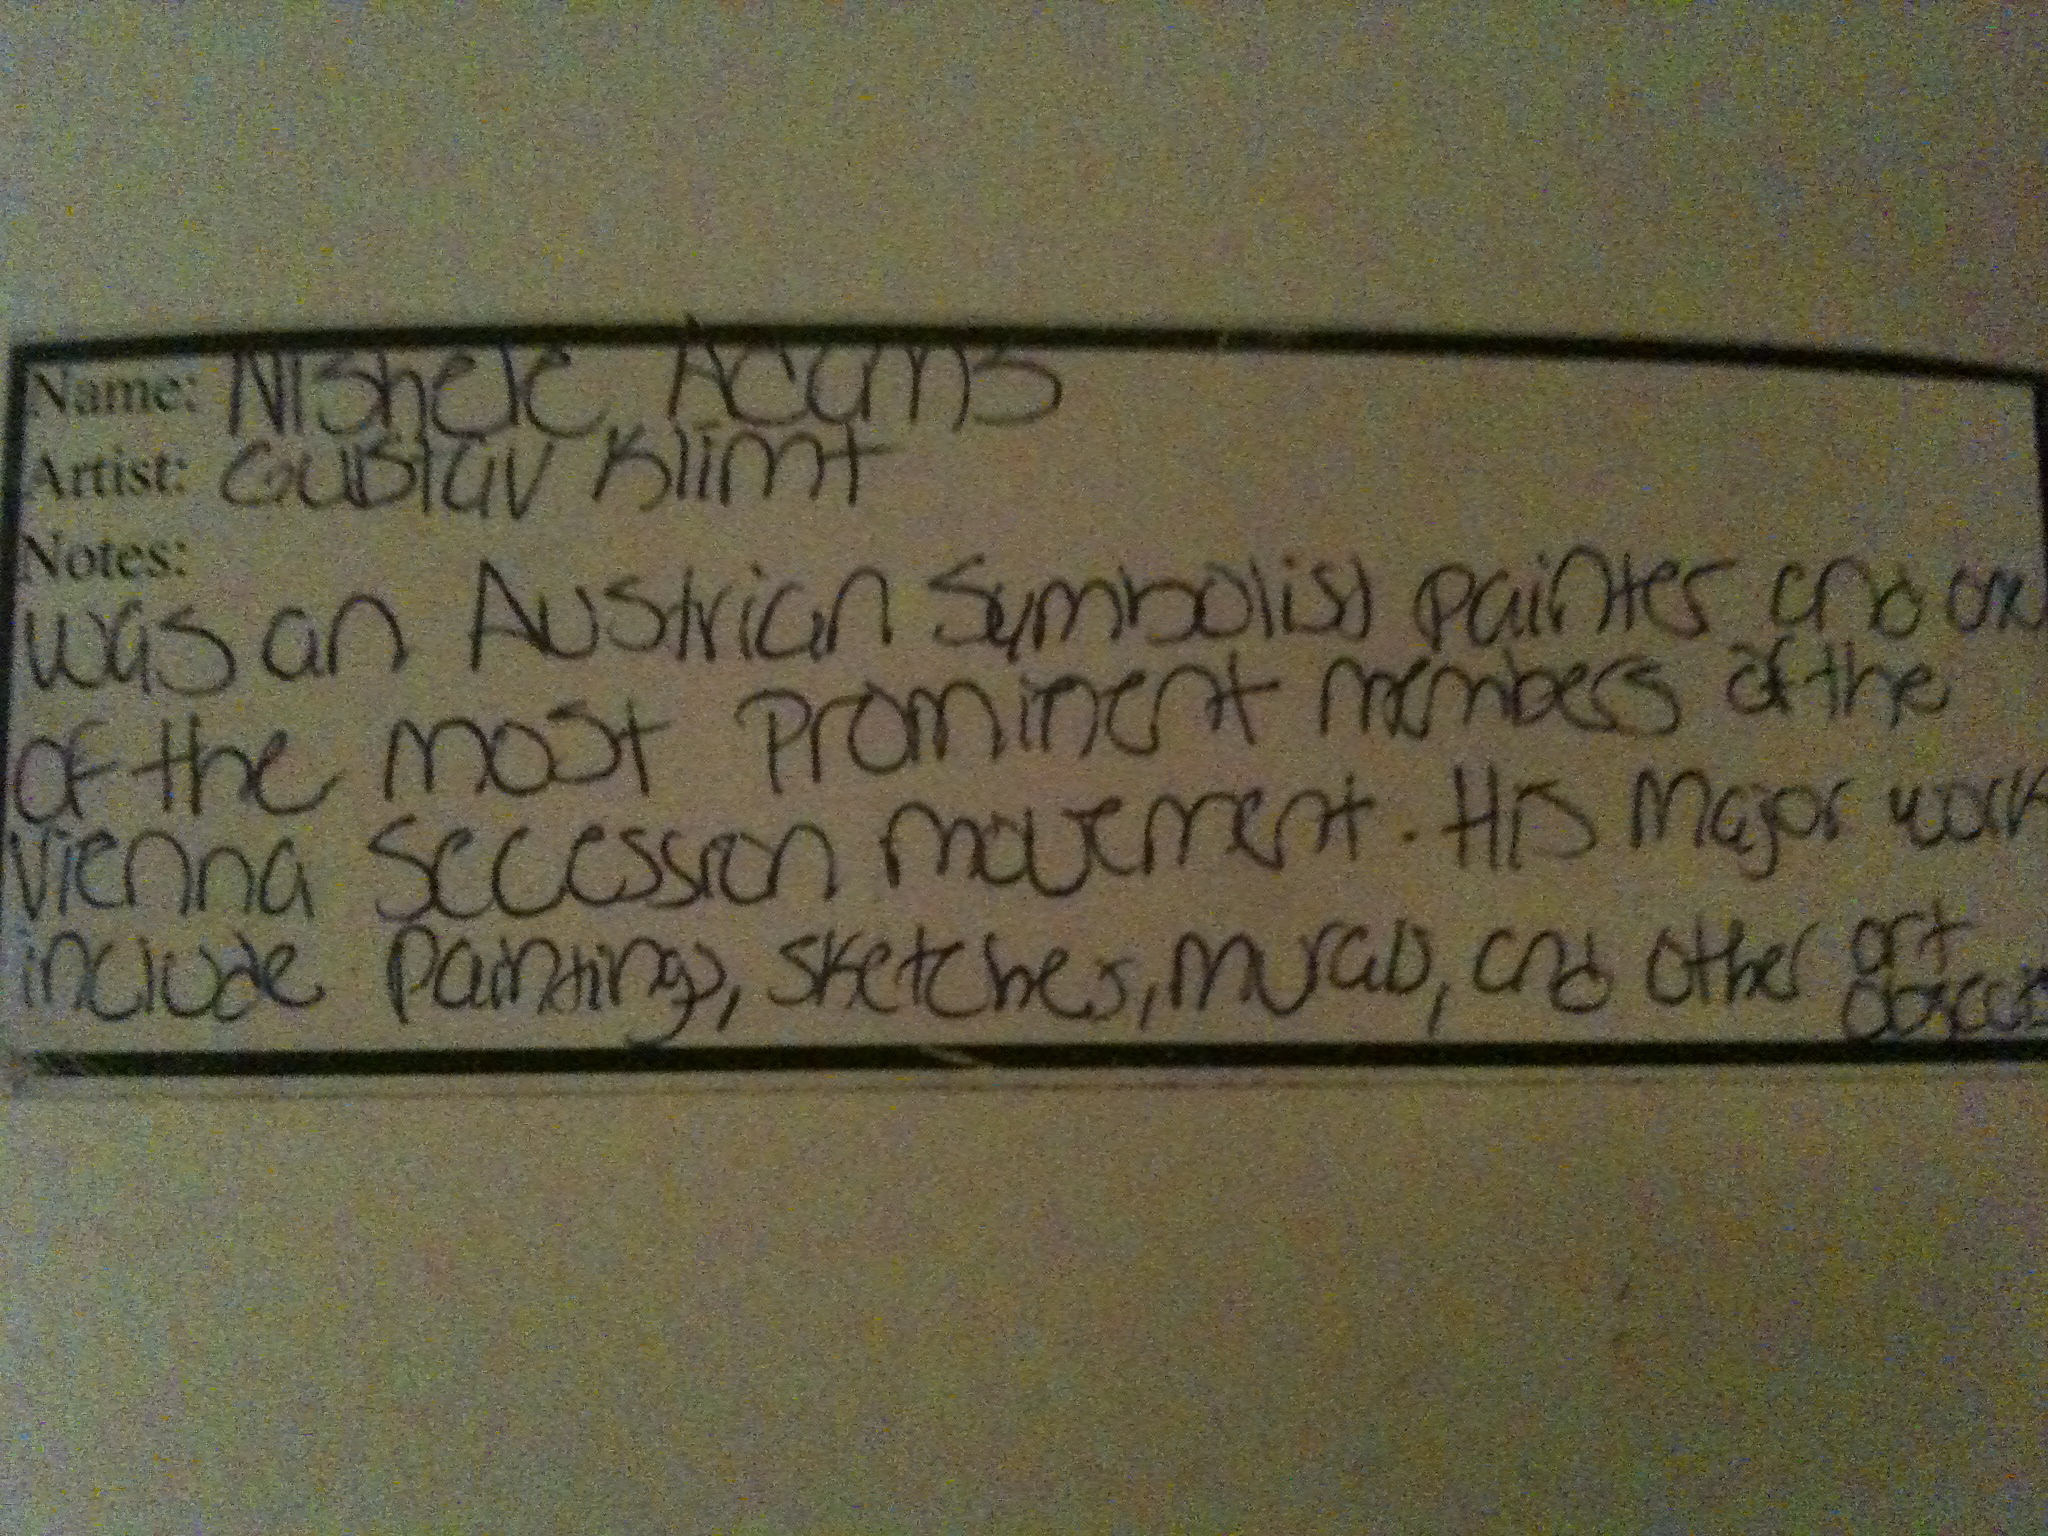 Name: Nishele Adams
Artist: Gustav Klimt
Notes:
was an Austrian Symbolist painter and one
of the most prominent members of the
Vienna Secession movement. His major work
include paintings, sketches, murals, and other art
objects